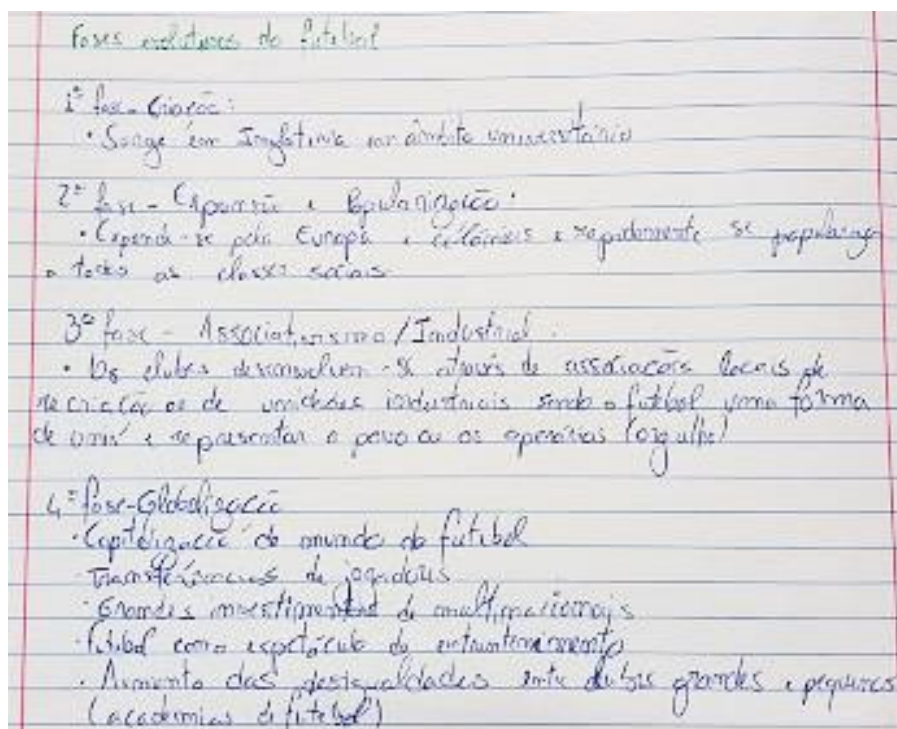 Fases evolutivas do futebol
1ª fase - Criação:
• Surge em Inglaterra em âmbito universitário
2ª fase - Expansão e Popularização:
• Expande-se pela Europa e colónias e rapidamente se populariza
a todas as classes sociais
3ª fase - Associativismo/Industrial.
• Os clubes desenvolvem-se através de associações locais de
recriação ou de unidades industriais sendo o futebol uma forma
de unir e representar o povo ou os operários (orgulho)
4ª fase-Globalização
• Capitalização do mundo do futebol
- Transferências de jogadores
- Grandes investimentos de multinacionais
- Futebol como espetáculo de entretenimento
• Aumento das desigualdades entre clubes grandes e pequenos
(academias de futebol)